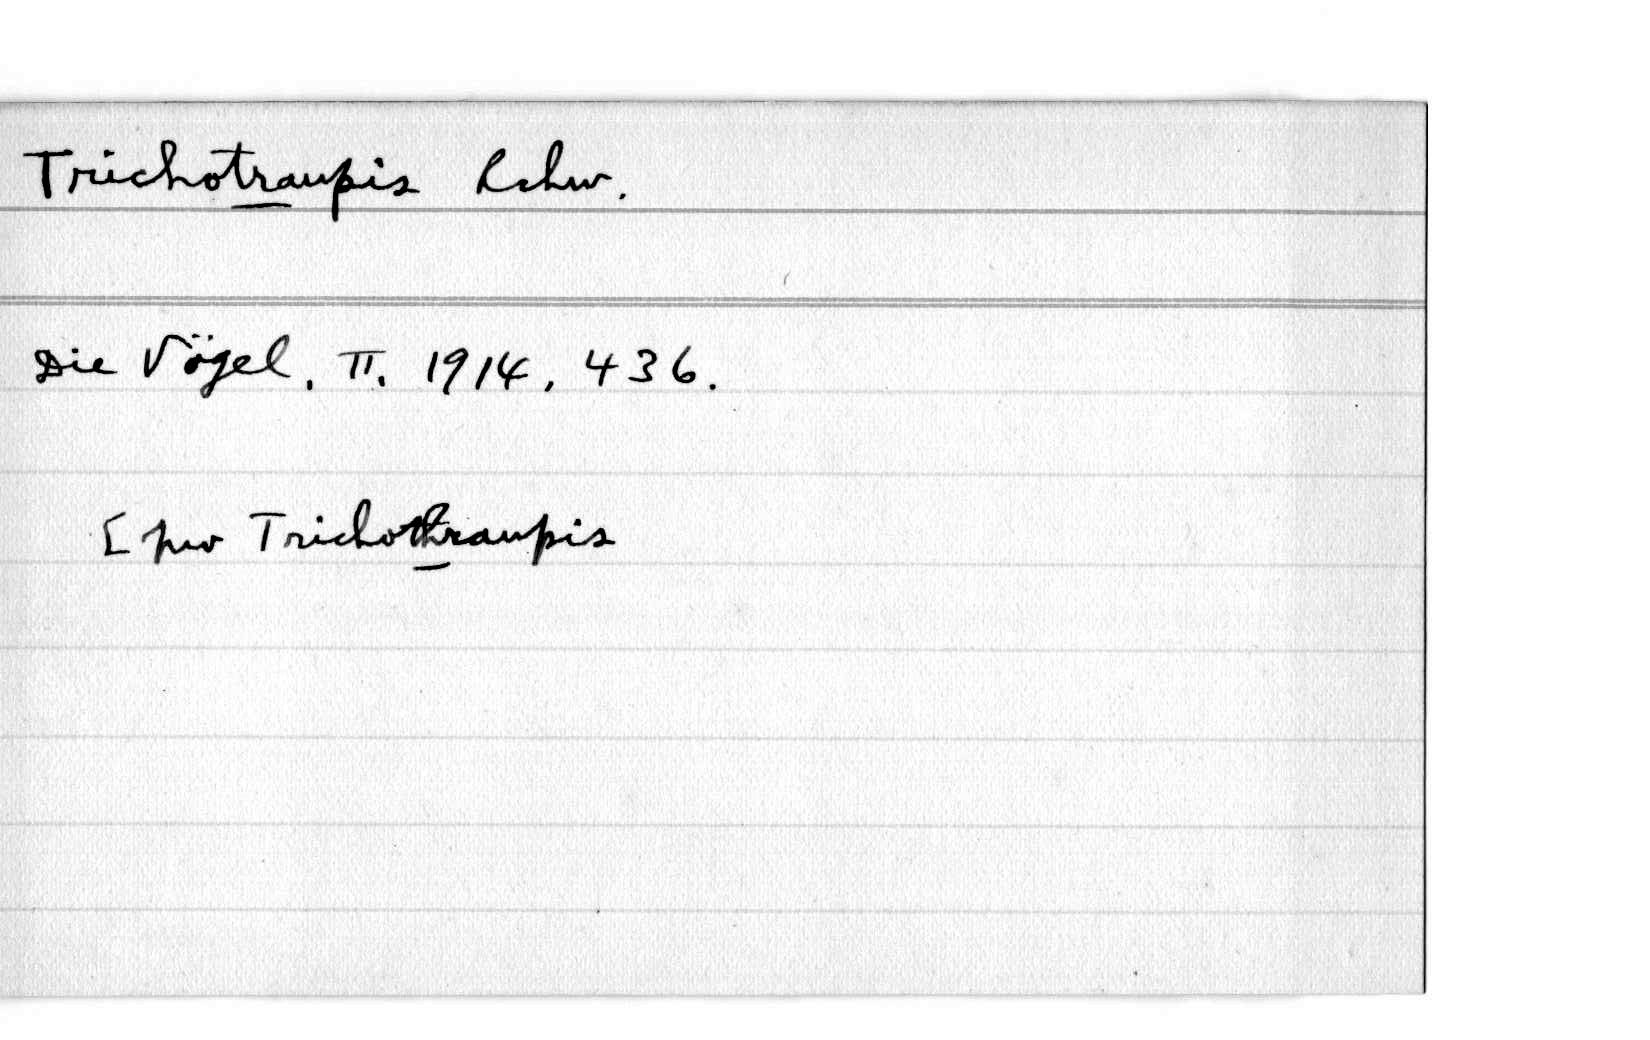 Trichotraupis Rchw.
Die Vögel, II. 1914, 436.
[ pro Trichothraupis